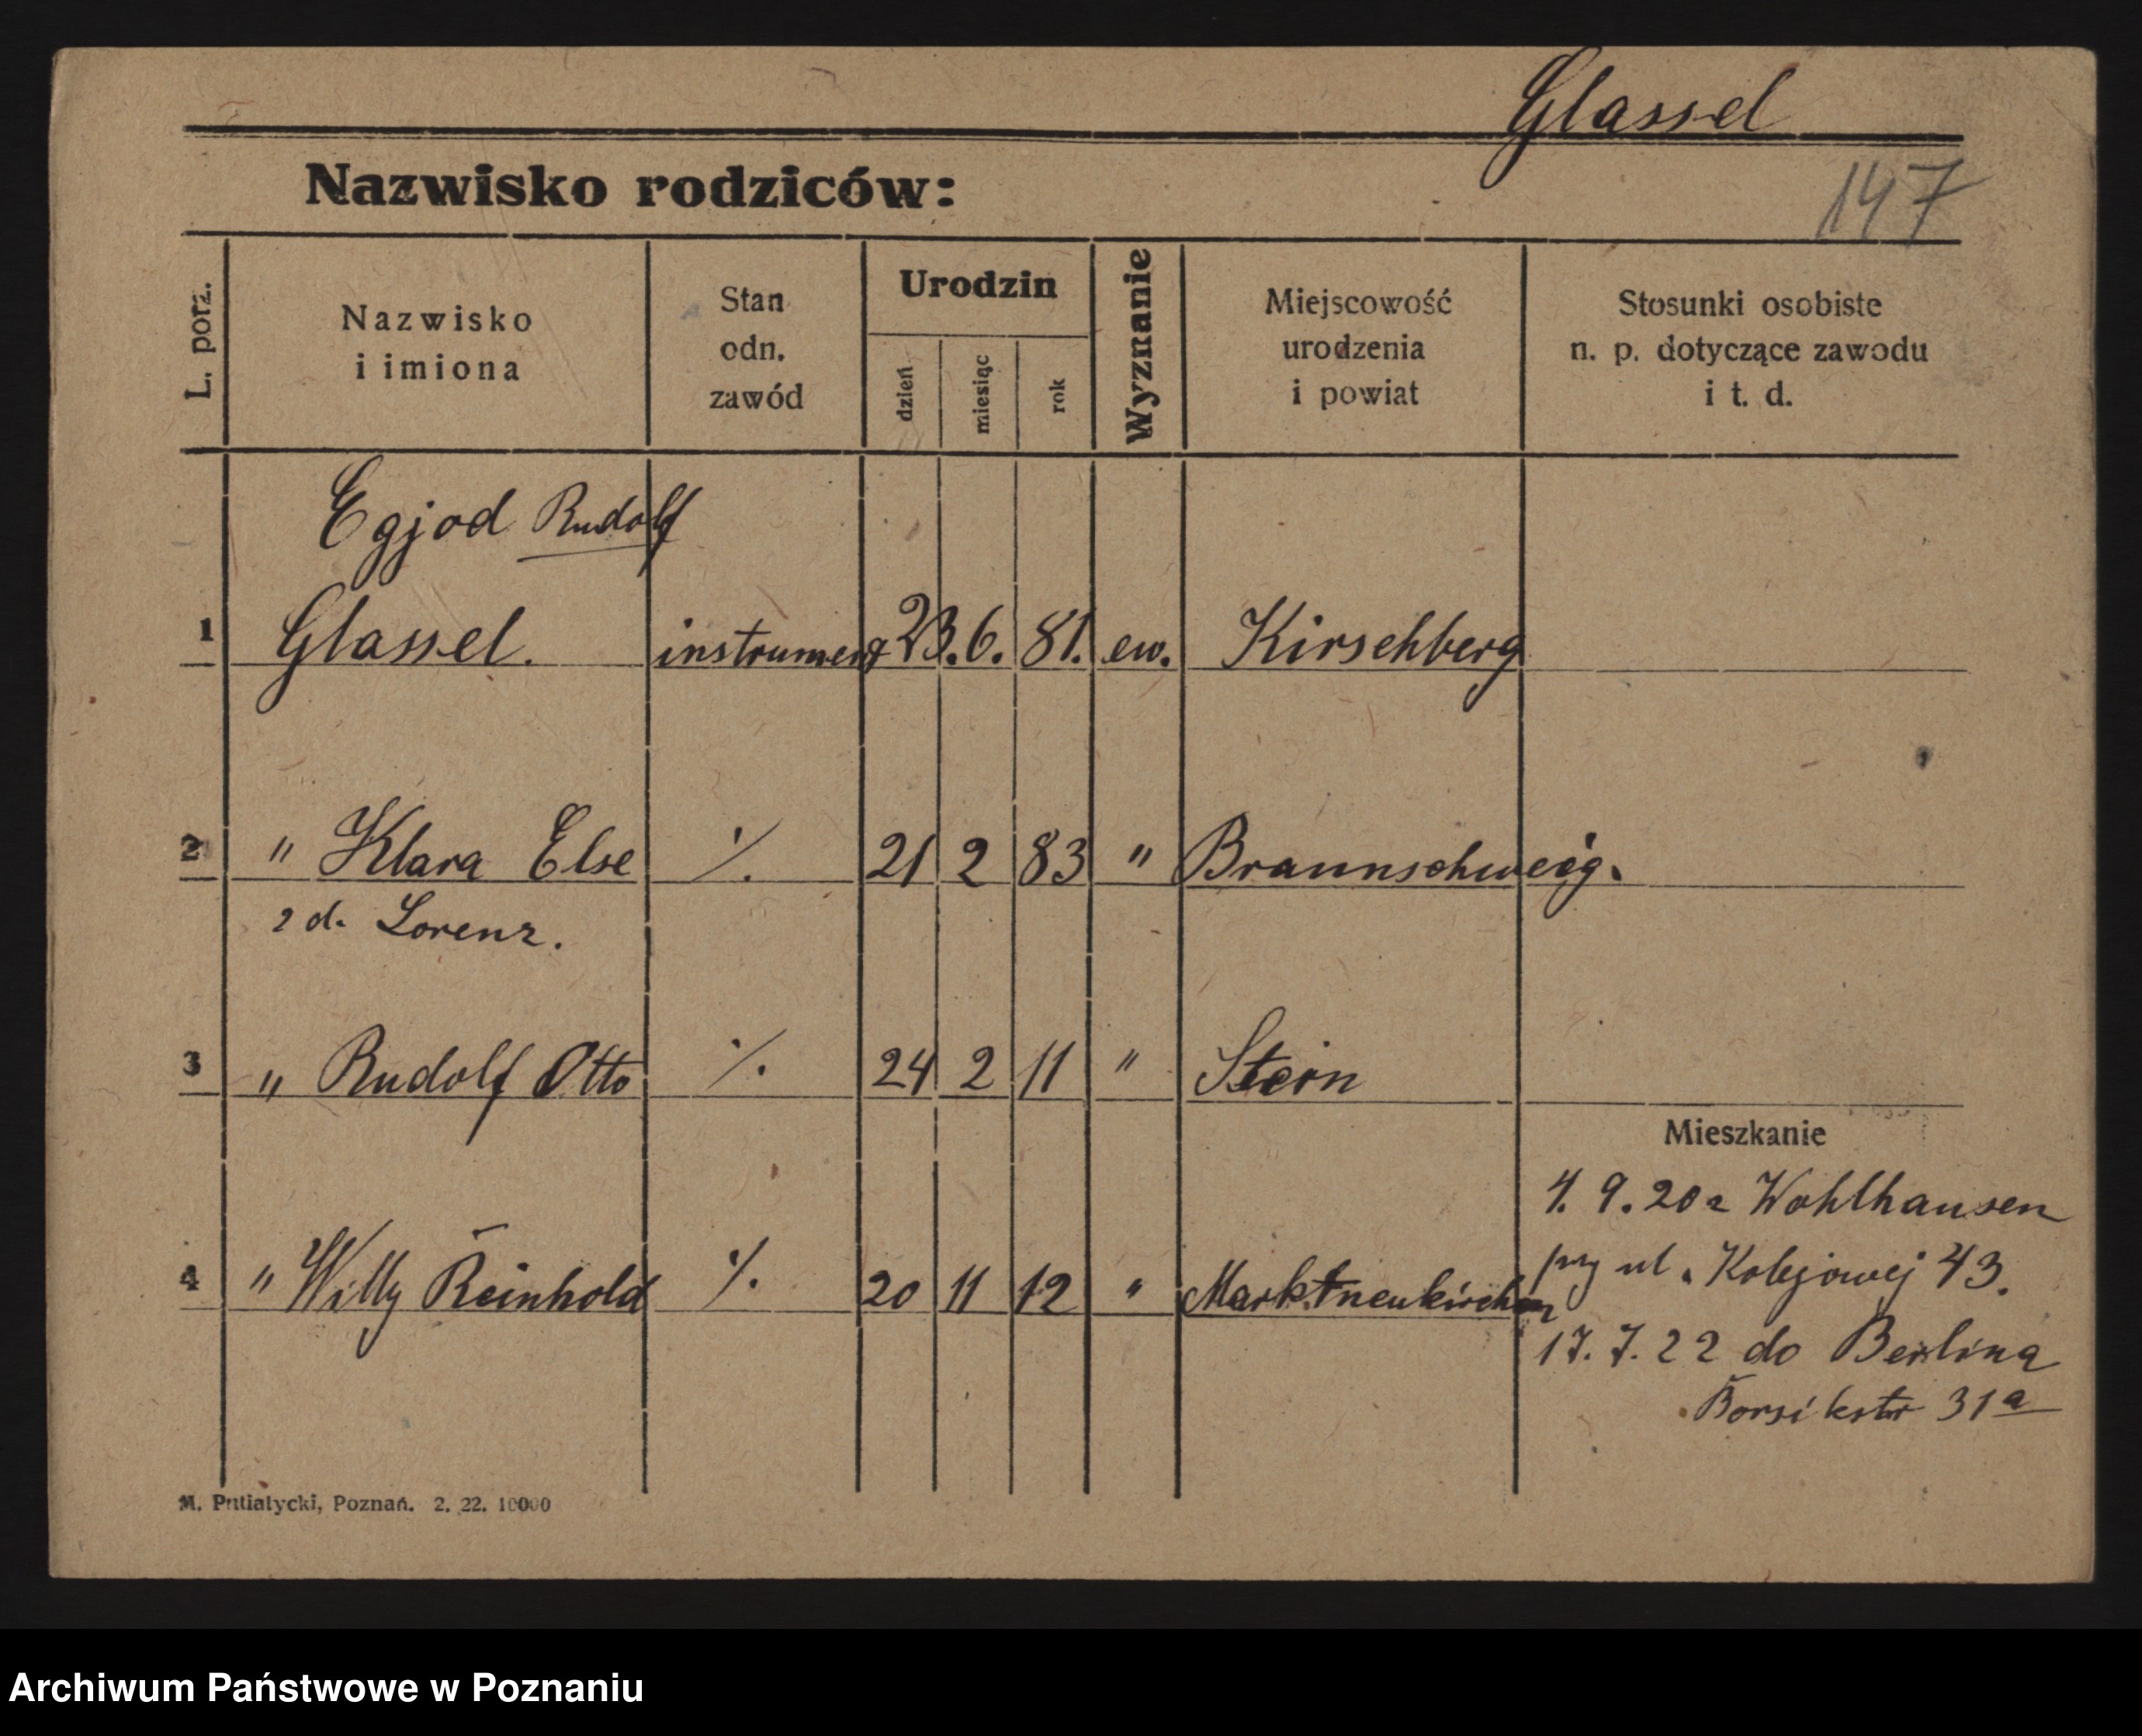 Glassel
147
Nazwisko rodziców:
L. porz.
Nazwisko
i imiona
Stan
odn.
zawód
Urodzin
dzień
miesiąc
rok
Wyznanie
Miejscowość
urodzenia
i powiat
Stosunki osobiste
n. p. dotyczące zawodu
i t. d.
Egjod Rudolf
1 Glassel. 23. 6. 81. ew. Kirschberg
2 " Klara Else ·/. 21 2 83 " Braunschweig.
z d. Lorenz.
3 " Rudolf Otto ·/. 24 2 11 " Stein
Mieszkanie
4. 9. 20 z Wohlhausen
4 " Willy Reinhold ·/. 20 11 12 " Marktneukirchen
przy ul. Kolejowej 43.
17. 7. 22 do Berlina
Borsikstr 31a
M. Putiatycki, Poznań. 2. 22. 10000
Archiwum Państwowe w Poznaniu